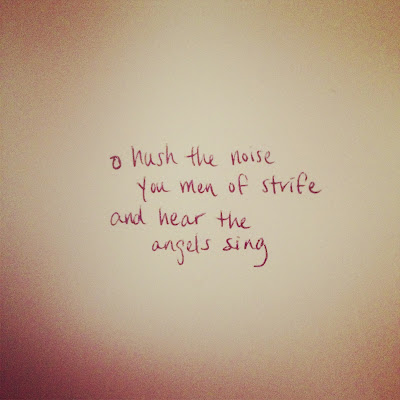 o hush the noise
you men of strife
and hear the
angels sing